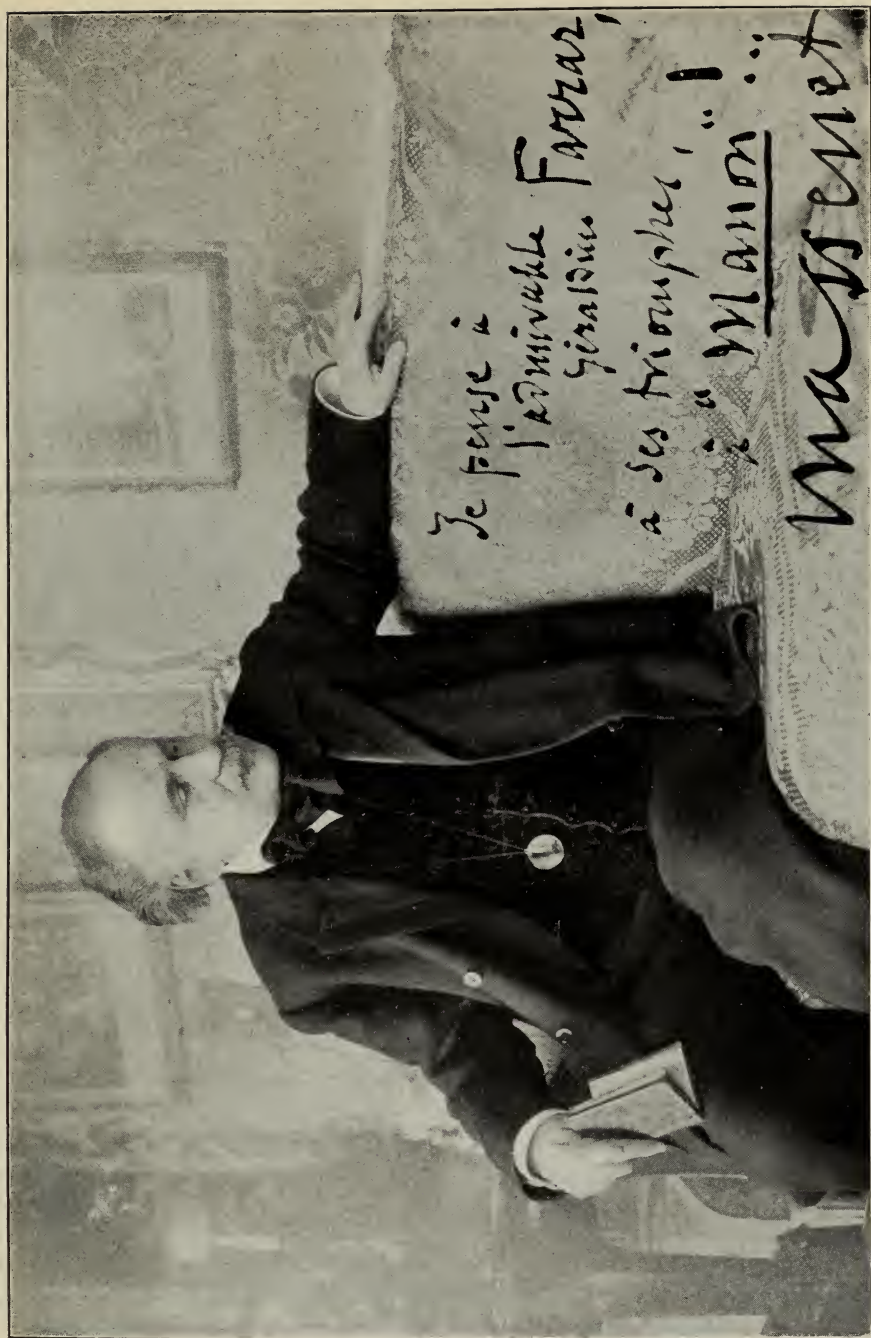 Je pense à
l'admirable
Géraldine Farrar,
à ses triomphes,
à "Manon"!...
Massenet